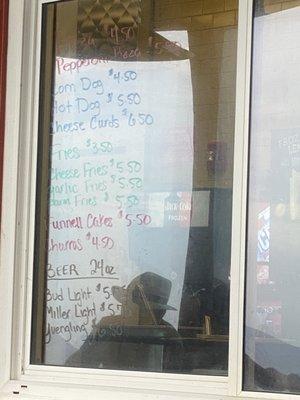 $4.50
Pepperoni Pizza $5.50
Corn Dog $4.50
Hot Dog $5.50
Cheese Curds $6.50
Fries $3.50
Cheese Fries $5.50
Garlic Fries $5.50
Fries $5.50
Funnell Cakes $5.50
Churros $4.50
BEER 24oz
Bud Light $5
Miller Light $5
Yuengling
JACK & COKE
FROZEN